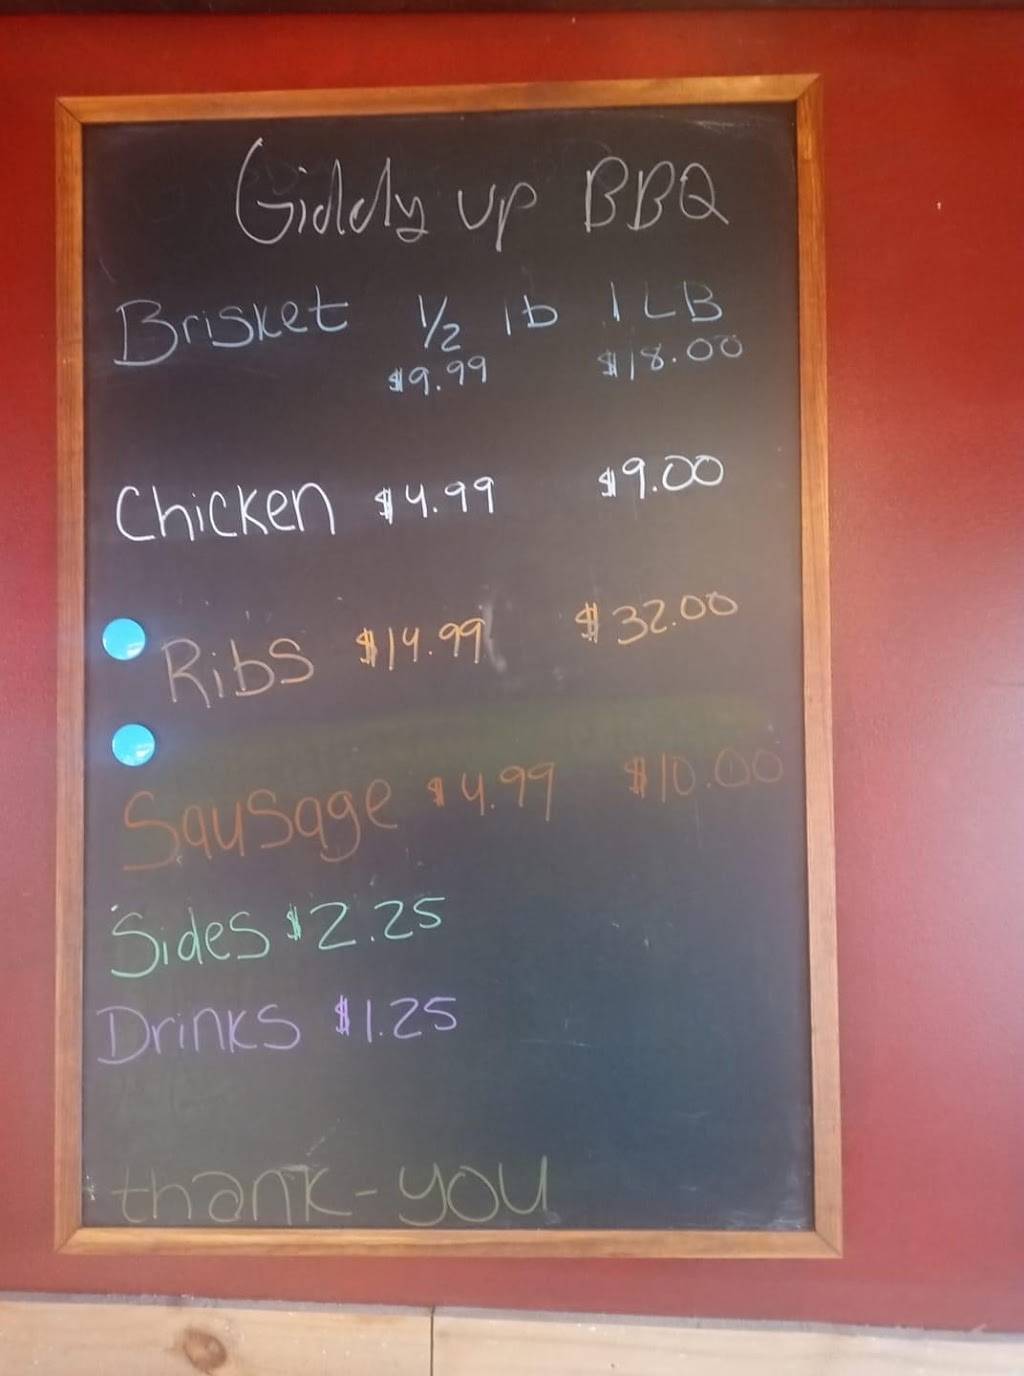 Giddy up BBQ
Brisket 1/2 lb 1 LB
$9.99 $18.00
Chicken $4.99 $9.00
Ribs $14.99 $32.00
Sausage $4.99 $10.00
Sides $2.25
Drinks $1.25
thank-you